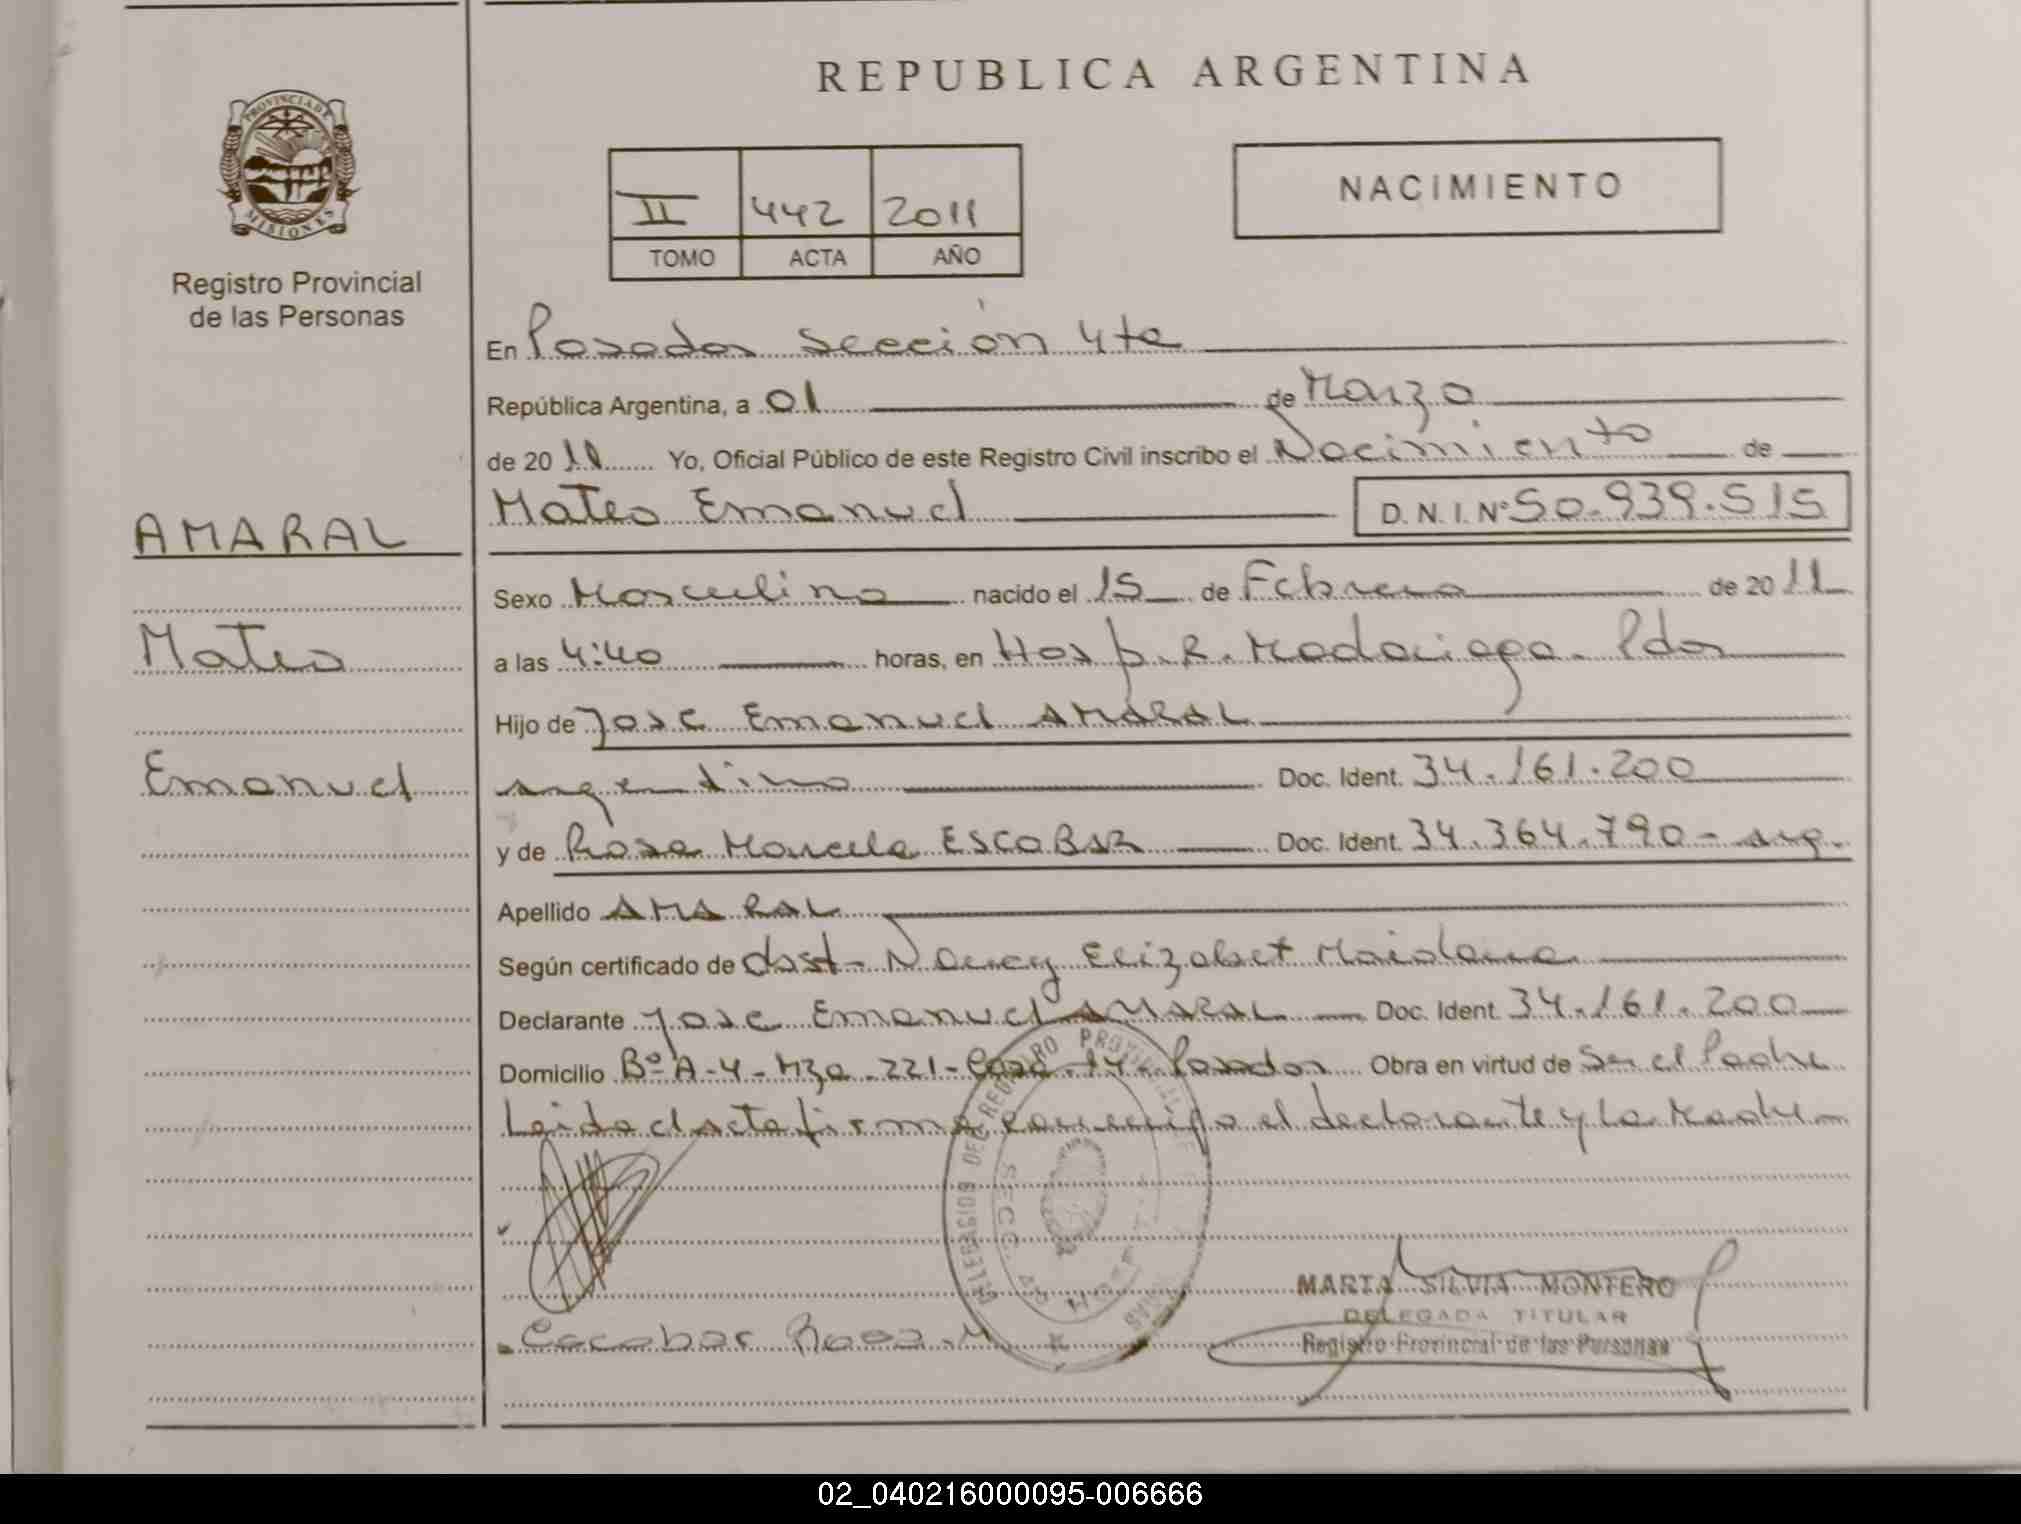 REPUBLICA ARGENTINA
PROVINCIA DE
MISIONES
Registro Provincial
de las Personas
II 442 2011
TOMO ACTA AÑO
NACIMIENTO
En Posadas Sección 4ta
República Argentina, a 01 de Marzo
de 20 11 Yo, Oficial Público de este Registro Civil inscribo el Nacimiento de
Mateo Emanuel D.N.I.Nº 50.939.515
AMARAL
Mateo
Emanuel
Sexo Masculino nacido el 15 de Febrero de 20 11
a las 4:40 horas, en Hosp. R. Madariaga - Pdas
Hijo de Jose Emanuel AMARAL
argentino Doc. Ident. 34.161.200
y de Rosa Marcela ESCOBAR Doc. Ident. 34.364.790 - arg.
Apellido AMARAL
Según certificado de Obst. Nancy Elizabet Maidana
Declarante Jose Emanuel AMARAL Doc. Ident. 34.161.200
Domicilio Bº A-4 - Mza - 221 - Casa - 14 - Posadas Obra en virtud de Ser el Padre
Leida el acta firma conmigo el declarante y la Madre
Escobar Rosa M
MARTA SILVIA MONTERO
DELEGADA TITULAR
Registro Provincial de las Personas
02_040216000095-006666